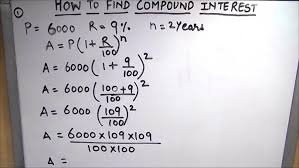 ① HOW TO FIND COMPOUND INTEREST
P = 6000 R = 9% n = 2 years
A = P(1 + R/100)^n
A = 6000 (1 + 9/100)^2
A = 6000 (100+9/100)^2
A = 6000 (109/100)^2
A = 6000 × 109 × 109 / 100 × 100
A =